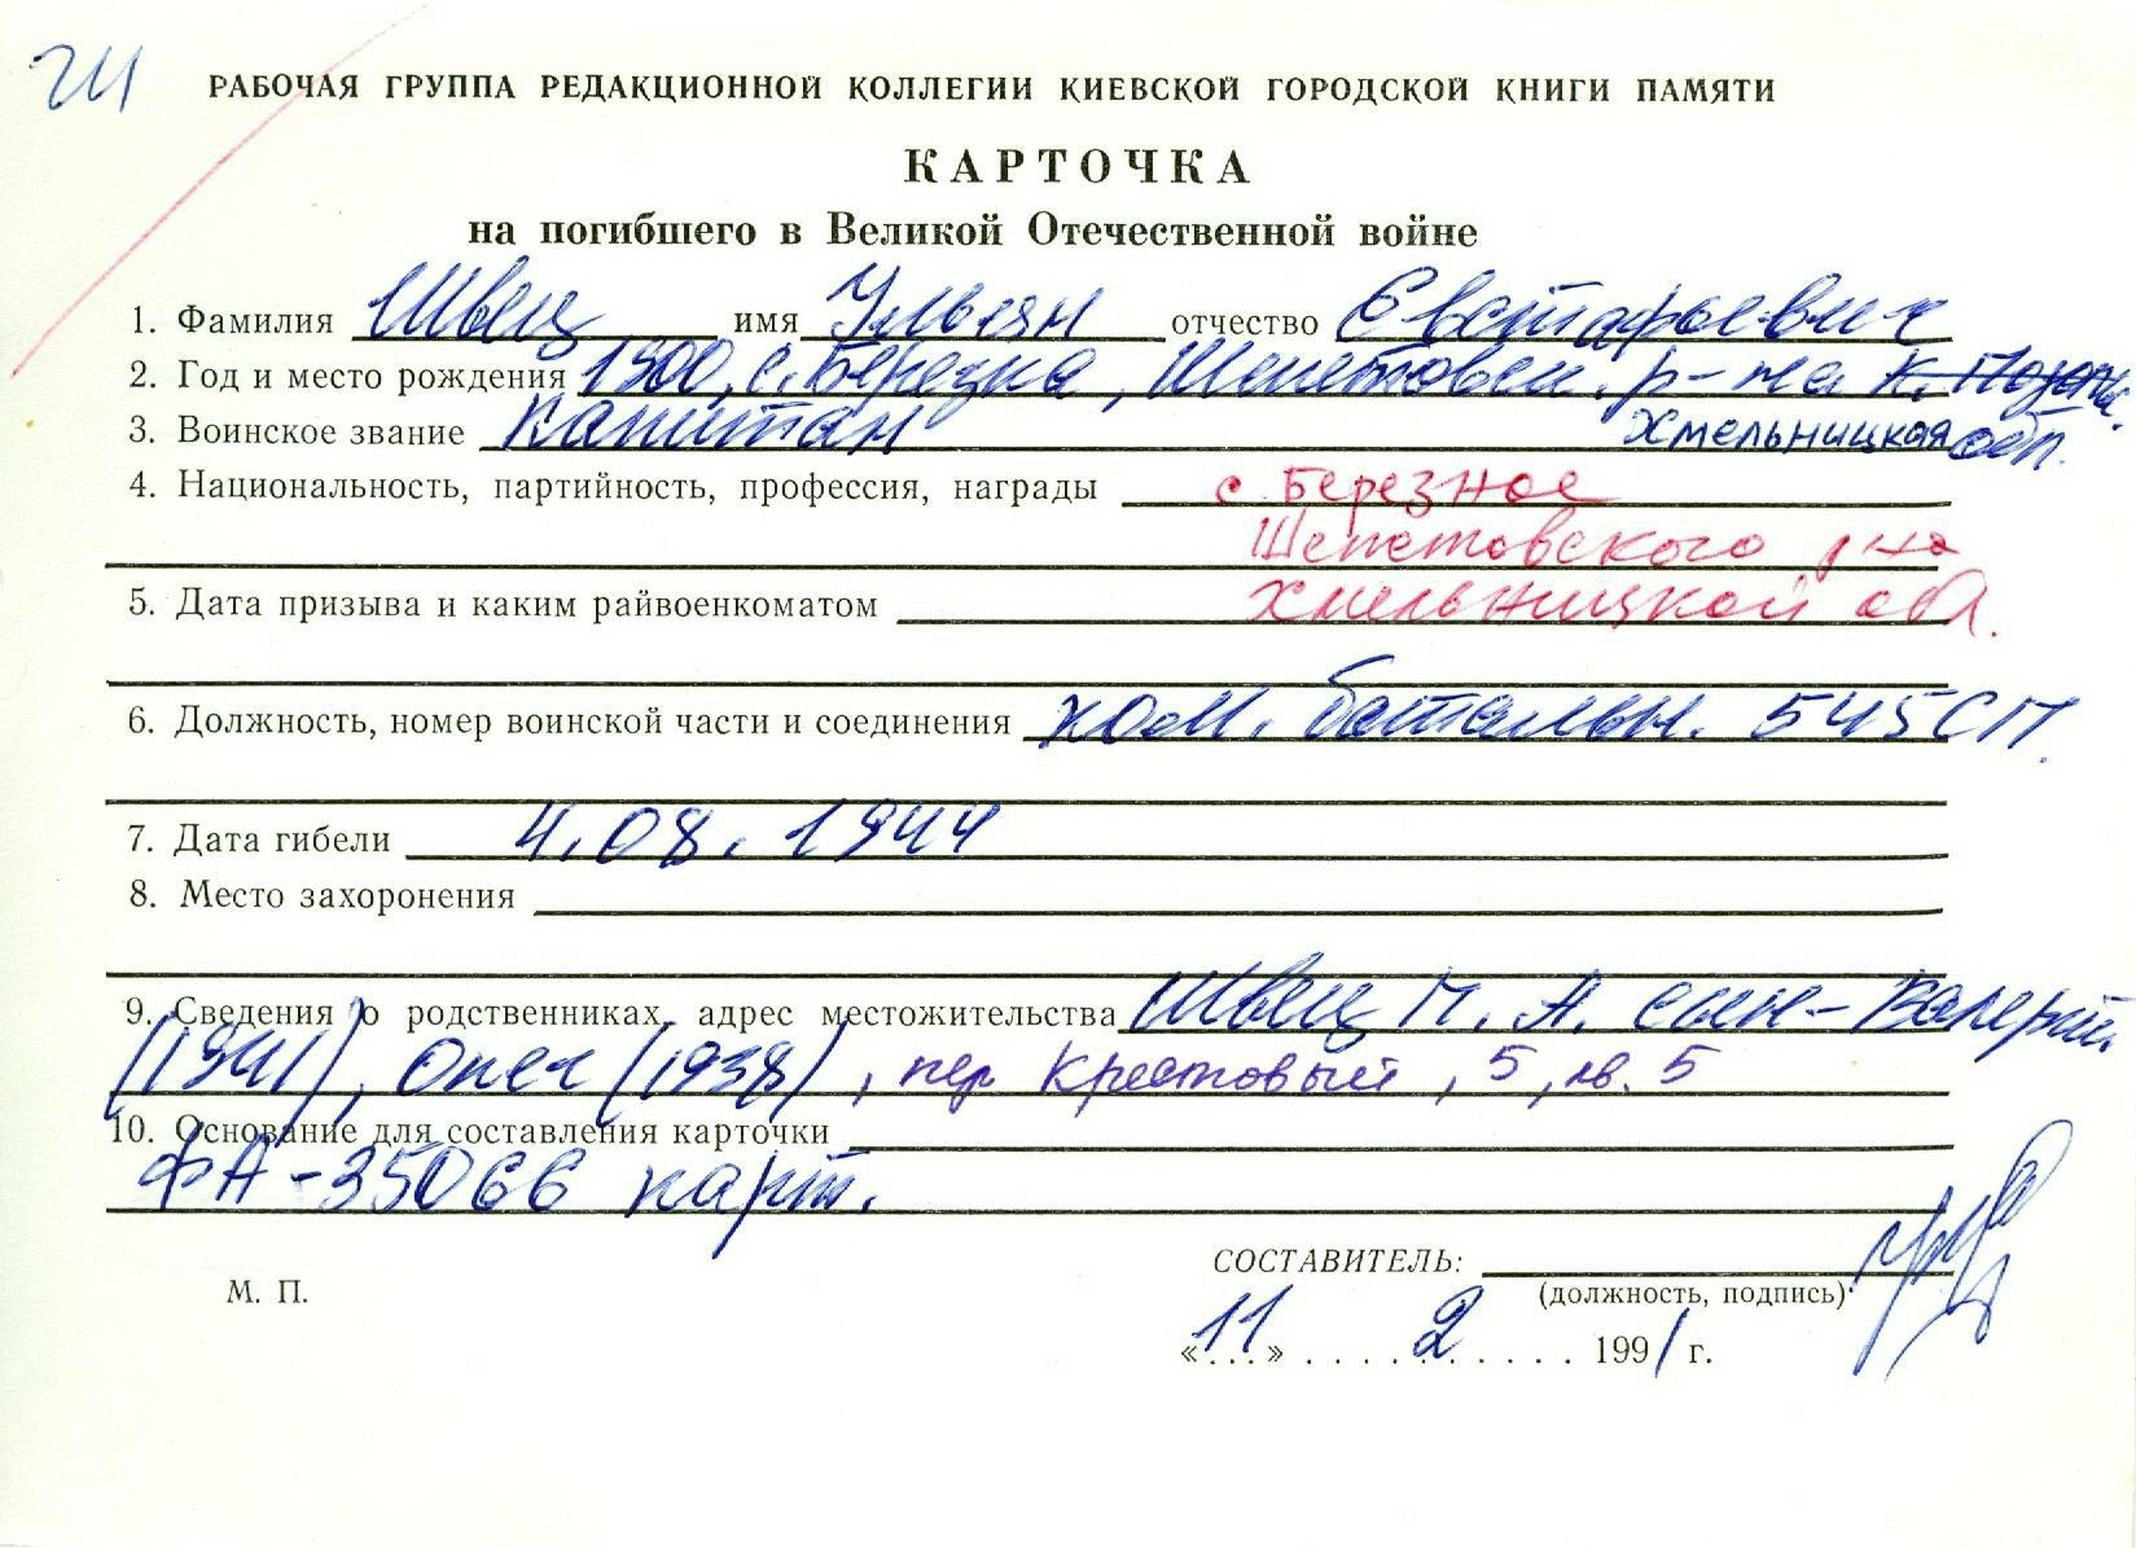 РАБОЧАЯ ГРУППА РЕДАКЦИОННОЙ КОЛЛЕГИИ КИЕВСКОЙ ГОРОДСКОЙ КНИГИ ПАМЯТИ
КАРТОЧКА
на погибшего в Великой Отечественной войне
1. Фамилия Швец имя Ульян отчество Евстафьевич
2. Год и место рождения 1900, с. Березна, Шепетовск. р-на
3. Воинское звание капитан Хмельницкая обл.
4. Национальность, партийность, профессия, награды с. Березное
Шепетовского р-на
5. Дата призыва и каким райвоенкоматом Хмельницкой обл.
6. Должность, номер воинской части и соединения ком. батальон. 545 СП.
7. Дата гибели 4.08.1944
8. Место захоронения
9. Сведения о родственниках, адрес местожительства Швец М. А. сын - Валерий
(1941), Олег (1938), пер Крестовый, 5, кв. 5
10. Основание для составления карточки
ФА-35066 карт.
СОСТАВИТЕЛЬ:
М. П.
(должность, подпись)
«11» 2 1991 г.